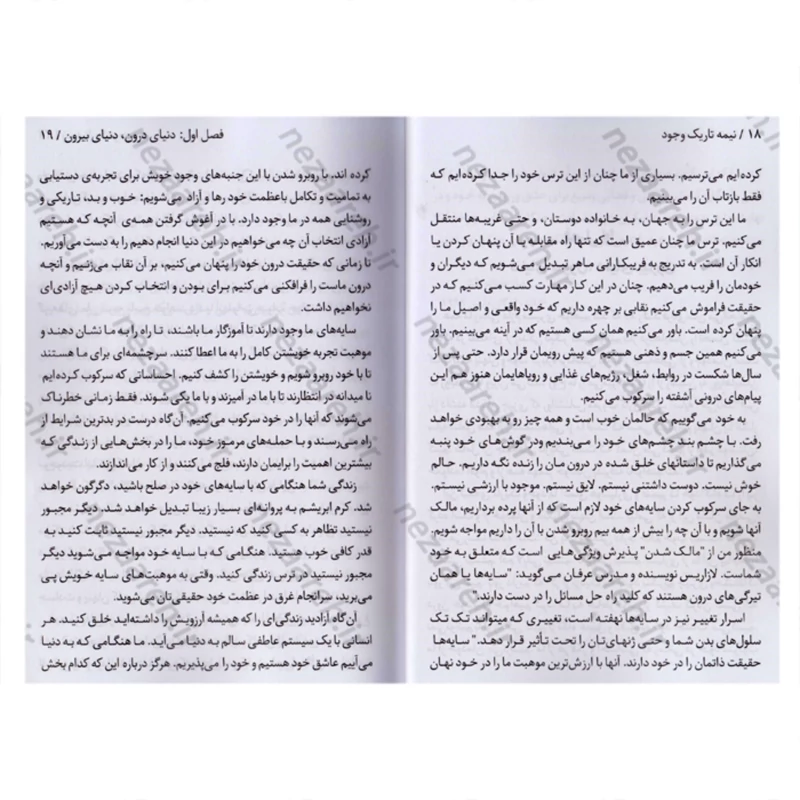 ۱۸ / نیمه تاریک وجود
کرده‌ایم می‌ترسیم. بسیاری از ما چنان از این ترس خود را جدا کرده‌ایم که
فقط بازتاب آن را می‌بینیم.
ما این ترس را به جهان، به خانواده دوستان، و حتی غریبه‌ها منتقل
می‌کنیم. ترس ما چنان عمیق است که تنها راه مقابله با آن پنهان کردن یا
انکار آن است. به تدریج به فریبکارانی ماهر تبدیل می‌شویم که دیگران و
خودمان را فریب می‌دهیم. چنان در این کار مهارت کسب می‌کنیم که در
حقیقت فراموش می‌کنیم نقابی بر چهره داریم که خود واقعی و اصیل ما را
پنهان کرده است. باور می‌کنیم همان کسی هستیم که در آینه می‌بینیم. باور
می‌کنیم همین جسم و ذهنی هستیم که پیش رویمان قرار دارد. حتی پس از
سال‌ها شکست در روابط، شغل، رژیم‌های غذایی و رویاهایمان هنوز هم این
پیام‌های درونی آشفته را سرکوب می‌کنیم.
به خود می‌گوییم که حالمان خوب است و همه چیز رو به بهبودی خواهد
رفت. با چشم بند چشم‌های خود را می‌بندیم ودر گوش‌های خود پنبه
می‌گذاریم تا داستانهای خلق شده در درون مان را زنده نگه داریم. حالم
خوش نیست. دوست داشتنی نیستم. لایق نیستم. موجود با ارزشی نیستم.
به جای سرکوب کردن سایه‌های خود لازم است که از آنها پرده برداریم، مالک
آنها شویم و با آن چه را بیش از همه بیم روبرو شدن با آن را داریم مواجه شویم.
منظور من از "مالک شدن" پذیرش ویژگی‌هایی است که متعلق به خود
شماست. لازاریس نویسنده و مدرس عرفان می‌گوید: "سایه‌ها یا همان
تیرگی‌های درون هستند که کلید راه حل مسائل را در دست دارند."
اسرار تغییر نیز در سایه‌ها نهفته است، تغییری که میتواند تک تک
سلول‌های بدن شما و حتی ژنهای‌تان را تحت تأثیر قرار دهد." سایه‌ها
حقیقت ذاتمان را در خود دارند. آنها با ارزش‌ترین موهبت ما را در خود نهان
فصل اول: دنیای درون، دنیای بیرون / ۱۹
کرده اند. با روبرو شدن با این جنبه‌های وجود خویش برای تجربه‌ی دستیابی
به تمامیت و تکامل باعظمت خود رها و آزاد می‌شویم: خوب و بد، تاریکی و
روشنایی همه در ما وجود دارد. با در آغوش گرفتن همه‌ی آنچه که هستیم
آزادی انتخاب آن چه می‌خواهیم در این دنیا انجام دهیم را به دست می‌آوریم.
تا زمانی که حقیقت درون خود را پنهان می‌کنیم، بر آن نقاب می‌زنیم و آنچه
درون ماست را فرافکنی می‌کنیم برای بودن و انتخاب کردن هیچ آزادی‌ای
نخواهیم داشت.
سایه‌های ما وجود دارند تا آموزگار ما باشند، تا راه را به ما نشان دهند و
موهبت تجربه خویشتن کامل را به ما اعطا کنند. سرچشمه‌ای برای ما هستند
تا با خود روبرو شویم و خویشتن را کشف کنیم. احساساتی که سرکوب کرده‌ایم
نا میدانه در انتظارند تا با ما در آمیزند و با ما یکی شوند. فقط زمانی خطرناک
می‌شوند که آنها را در خود سرکوب می‌کنیم. آن گاه درست در بدترین شرایط از
راه می‌رسند و با حمله‌های مرموز خود، ما را در بخش‌هایی از زندگی که
بیشترین اهمیت را برایمان دارند، فلج می‌کنند و از کار می‌اندازند.
زندگی شما هنگامی که با سایه‌های خود در صلح باشید، دگرگون خواهد
شد. کرم ابریشم به پروانه‌ای بسیار زیبا تبدیل خواهد شد. دیگر مجبور
نیستید تظاهر به کسی کنید که نیستید. دیگر مجبور نیستید ثابت کنید به
قدر کافی خوب هستید. هنگامی که با سایه خود مواجه می‌شوید دیگر
مجبور نیستید در ترس زندگی کنید. وقتی به موهبت‌های سایه خویش پی
می‌برید، سرانجام غرق در عظمت خود حقیقی‌تان می‌شوید.
آن‌گاه آزادید زندگی‌ای را که همیشه آرزویش را داشته‌اید خلق کنید. هر
انسانی با یک سیستم عاطفی سالم به دنیا می‌آید. ما هنگامی که به دنیا
می‌آییم عاشق خود هستیم و خود را می‌پذیریم. هرگز درباره این که کدام بخش
nezaareh.ir